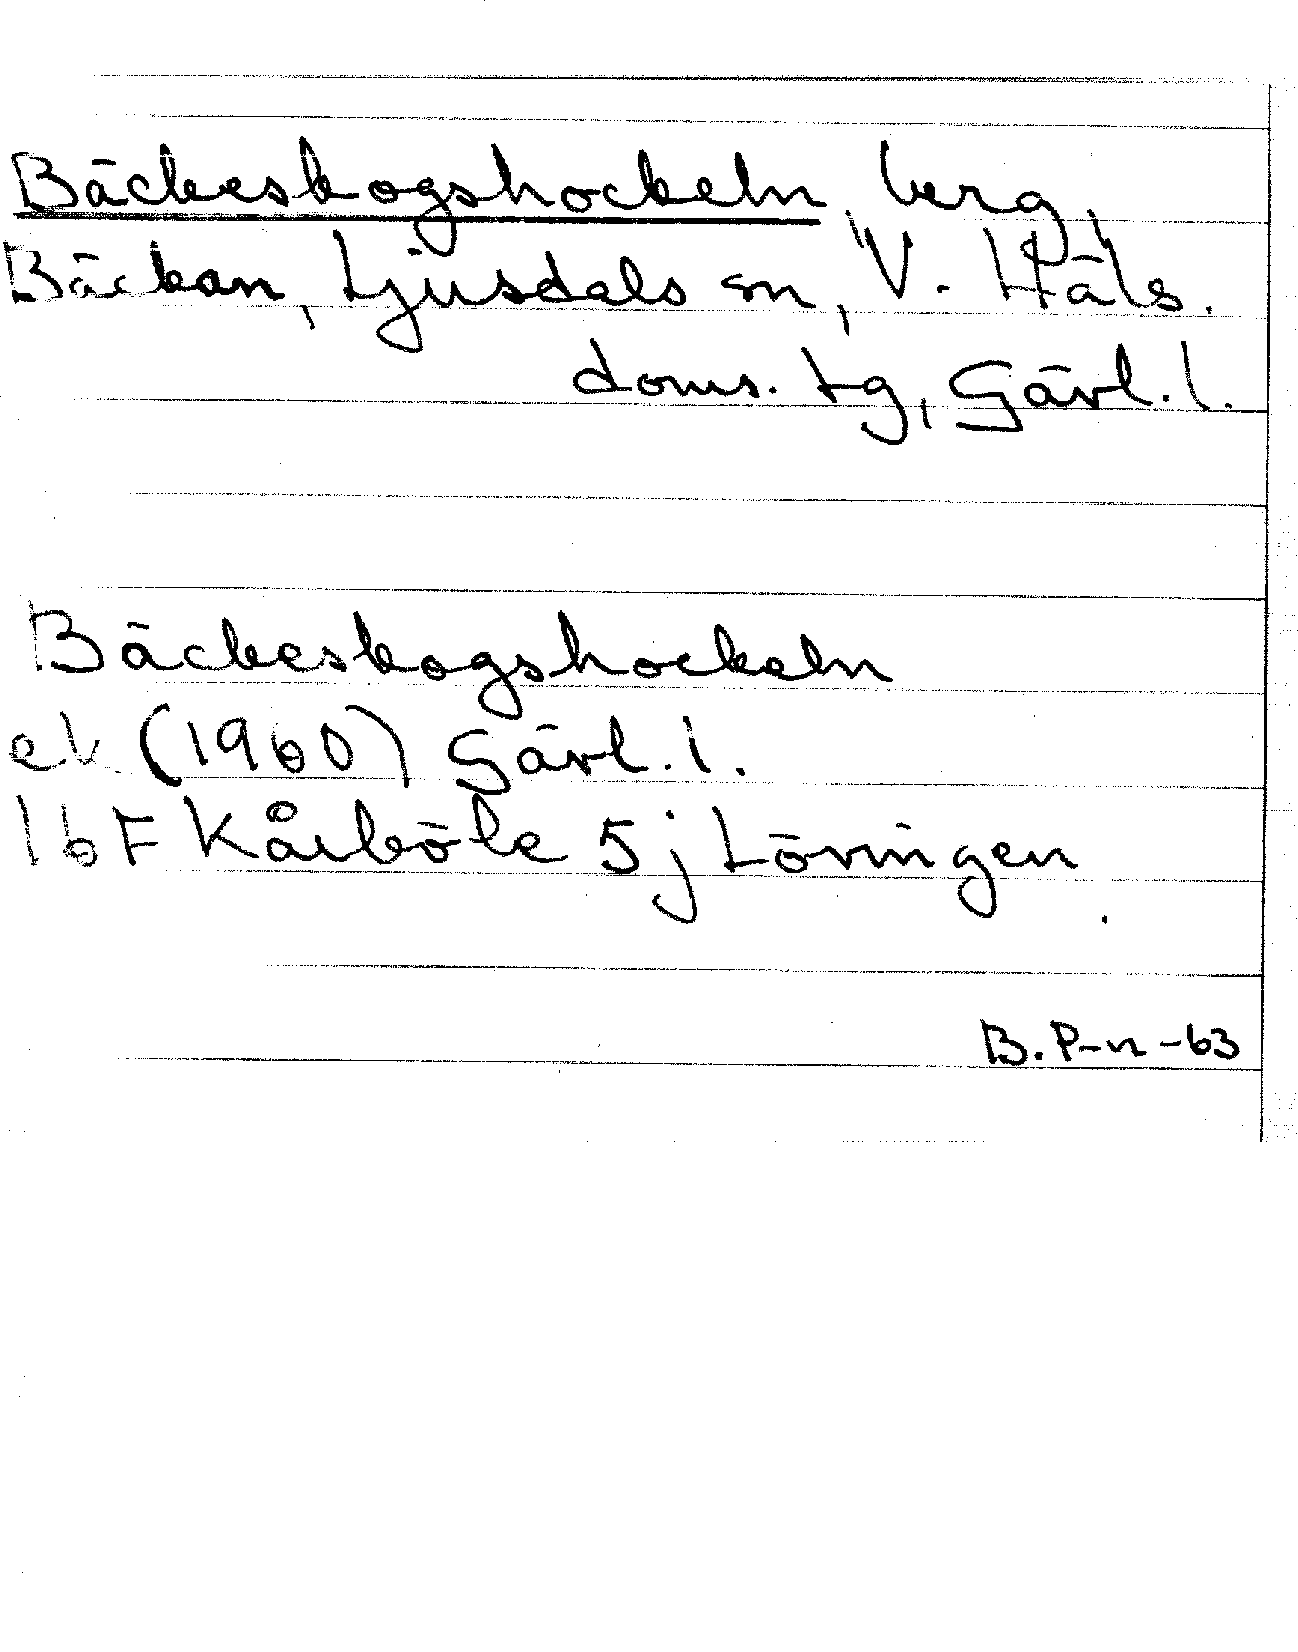 Bäckeskogshockeln, berg,
Bäckan, Ljusdals sn, V. Häls.
doms. tg, Gävl. l.
Bäckeskogshockeln
ek (1960) Gävl. l.
16F Kårböle 5j Lövingen
B. P-n -63